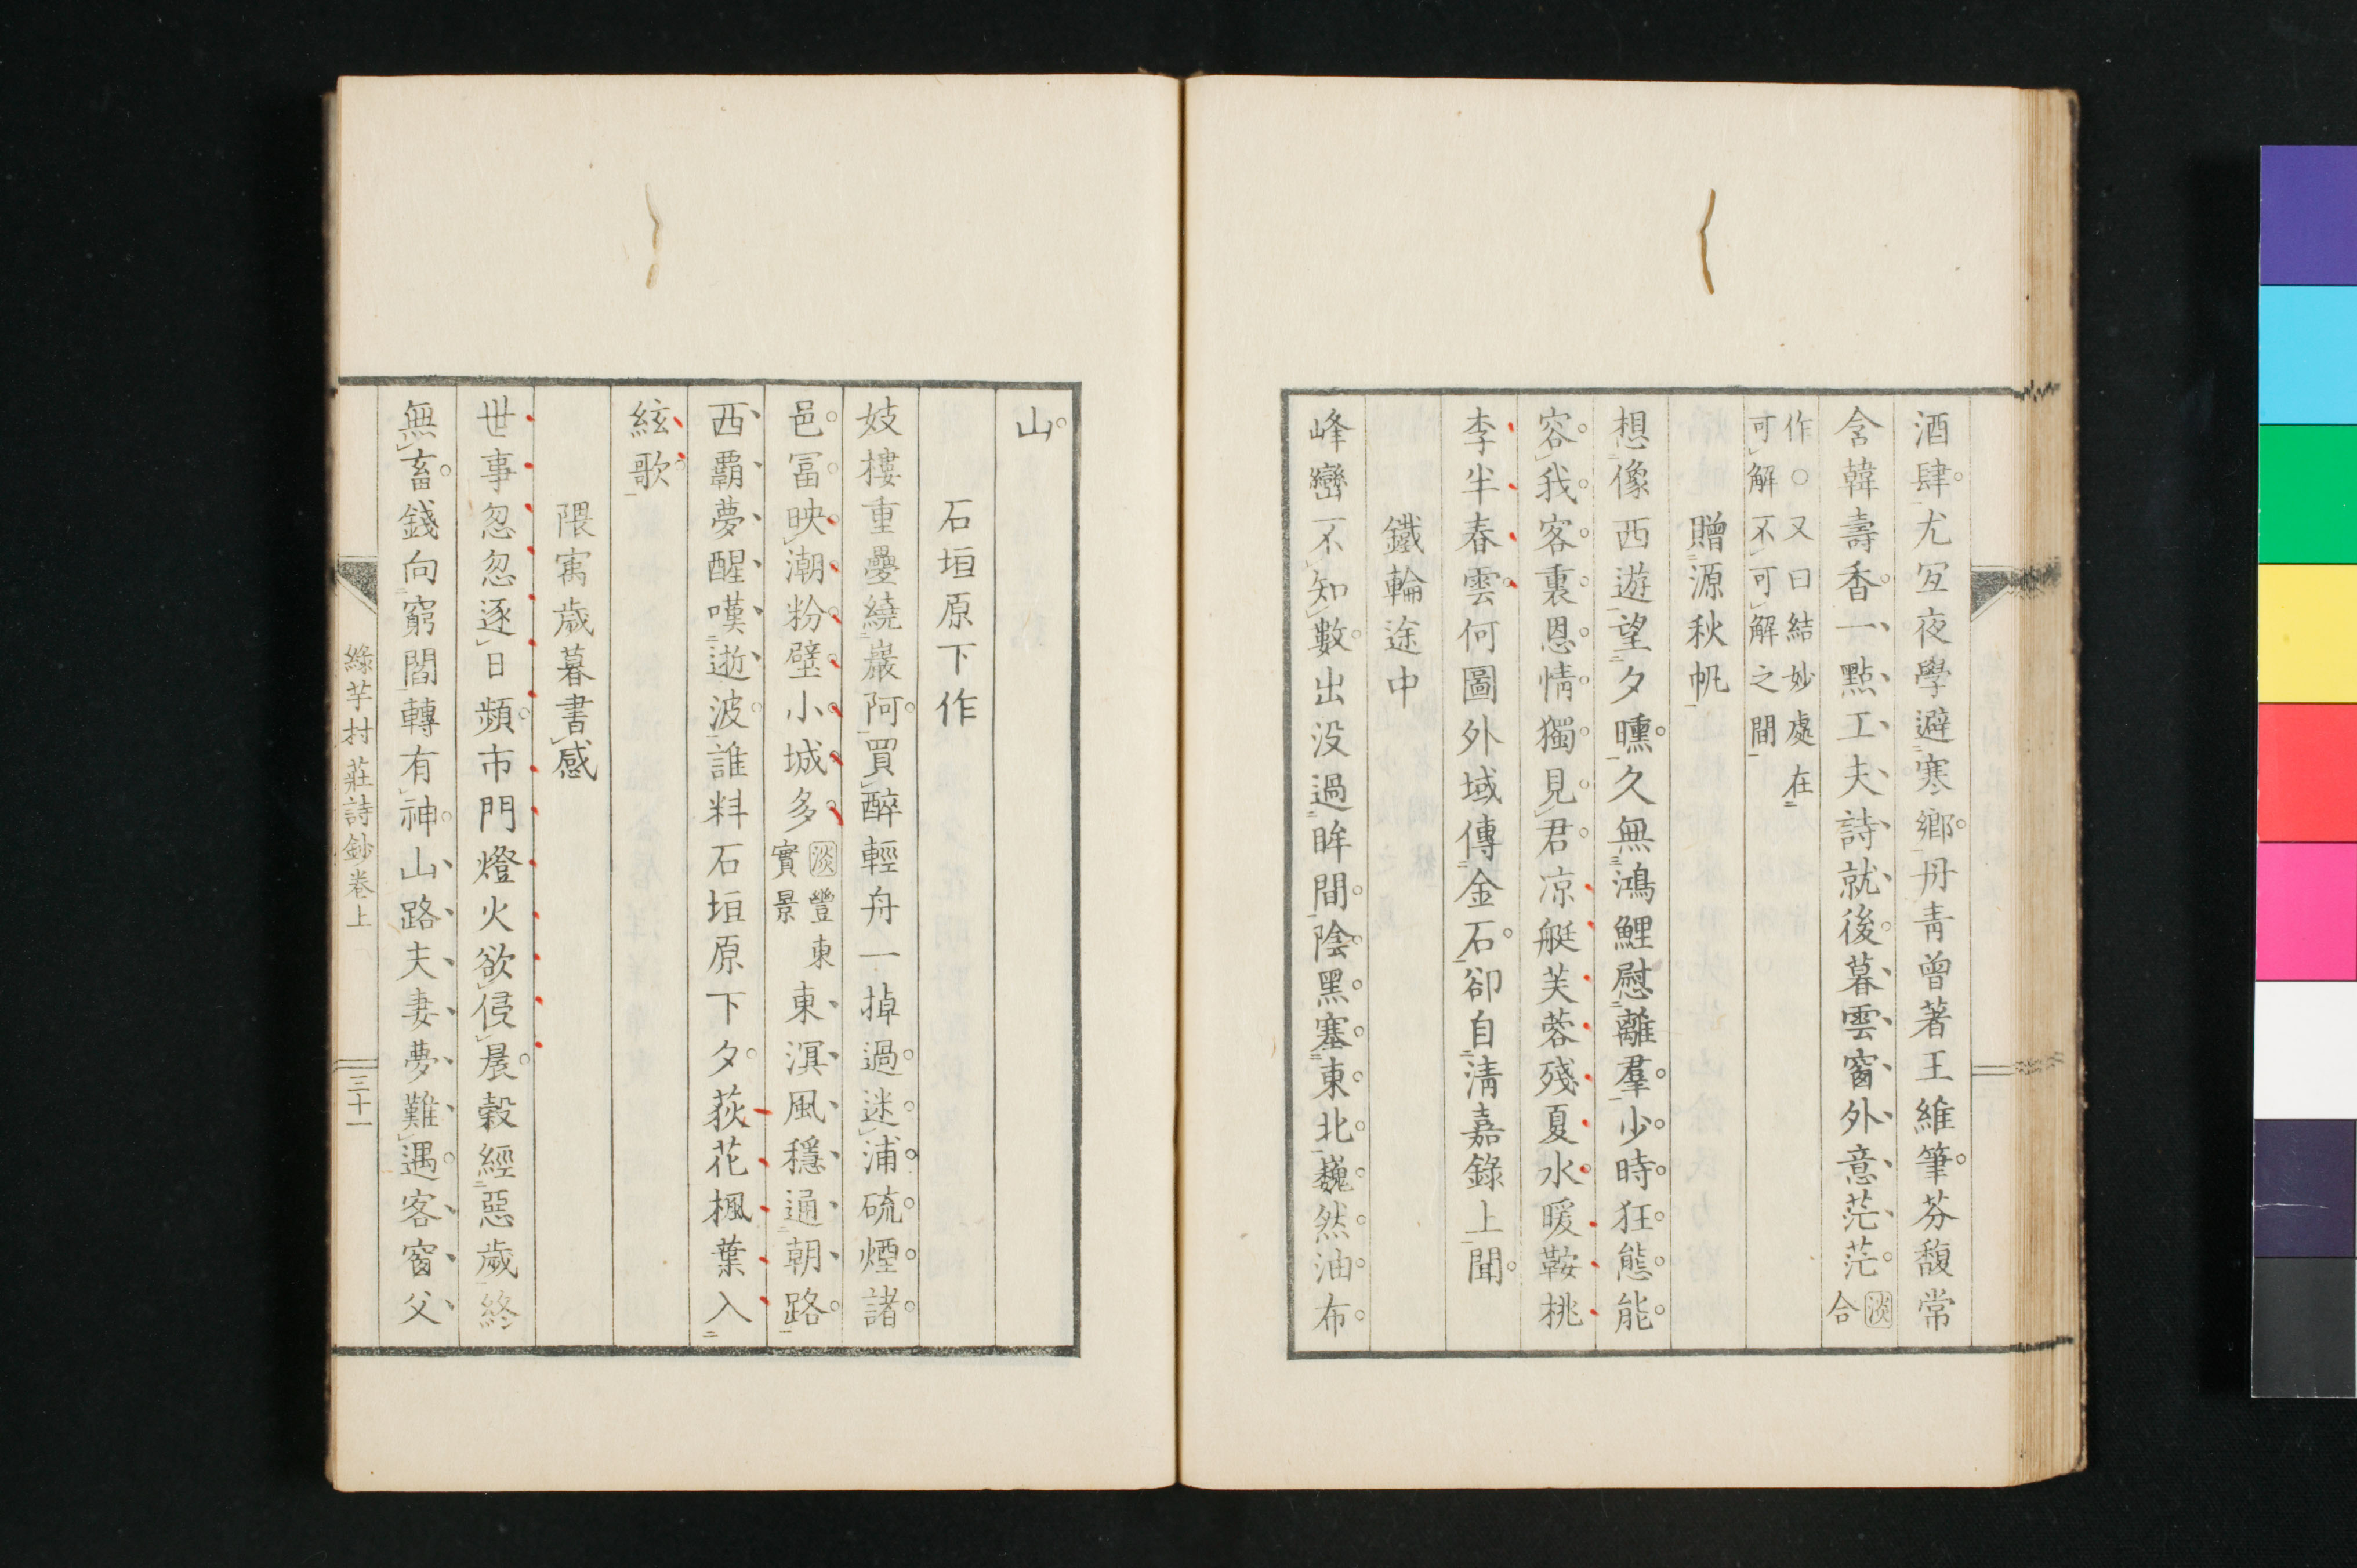 酒肆尤宜夜學避寒鄉丹青曾著王維筆芬馥常
含韓壽香一點工夫詩就後暮雲窗外意茫茫淡合
作○又曰結妙處在
可解不可解之間
贈源秋帆
想像西遊望夕曛久無鴻鯉慰離羣少時狂態能
容我客裏恩情獨見君凉艇芙蓉殘夏水暖鞍桃
李半春雲何圖外域傳金石卻自清嘉錄上聞
鐵輪途中
峰巒不知數出没過眸間陰黑塞東北巍然油布
山
石垣原下作
妓樓重疊繞巖阿買醉輕舟一掉過迷浦硫煙諸
邑冨映潮粉壁小城多淡豐東實景東溟風穩通朝路
西霸夢醒嘆逝波誰料石垣原下夕荻花楓葉入
絃歌
隈寓歳暮書感
世事忽忽逐日頻市門燈火欲侵晨穀經惡歲終
無畜錢向窮閻轉有神山路夫妻夢難遇客窗父
綠芋村莊詩鈔卷上
三十一